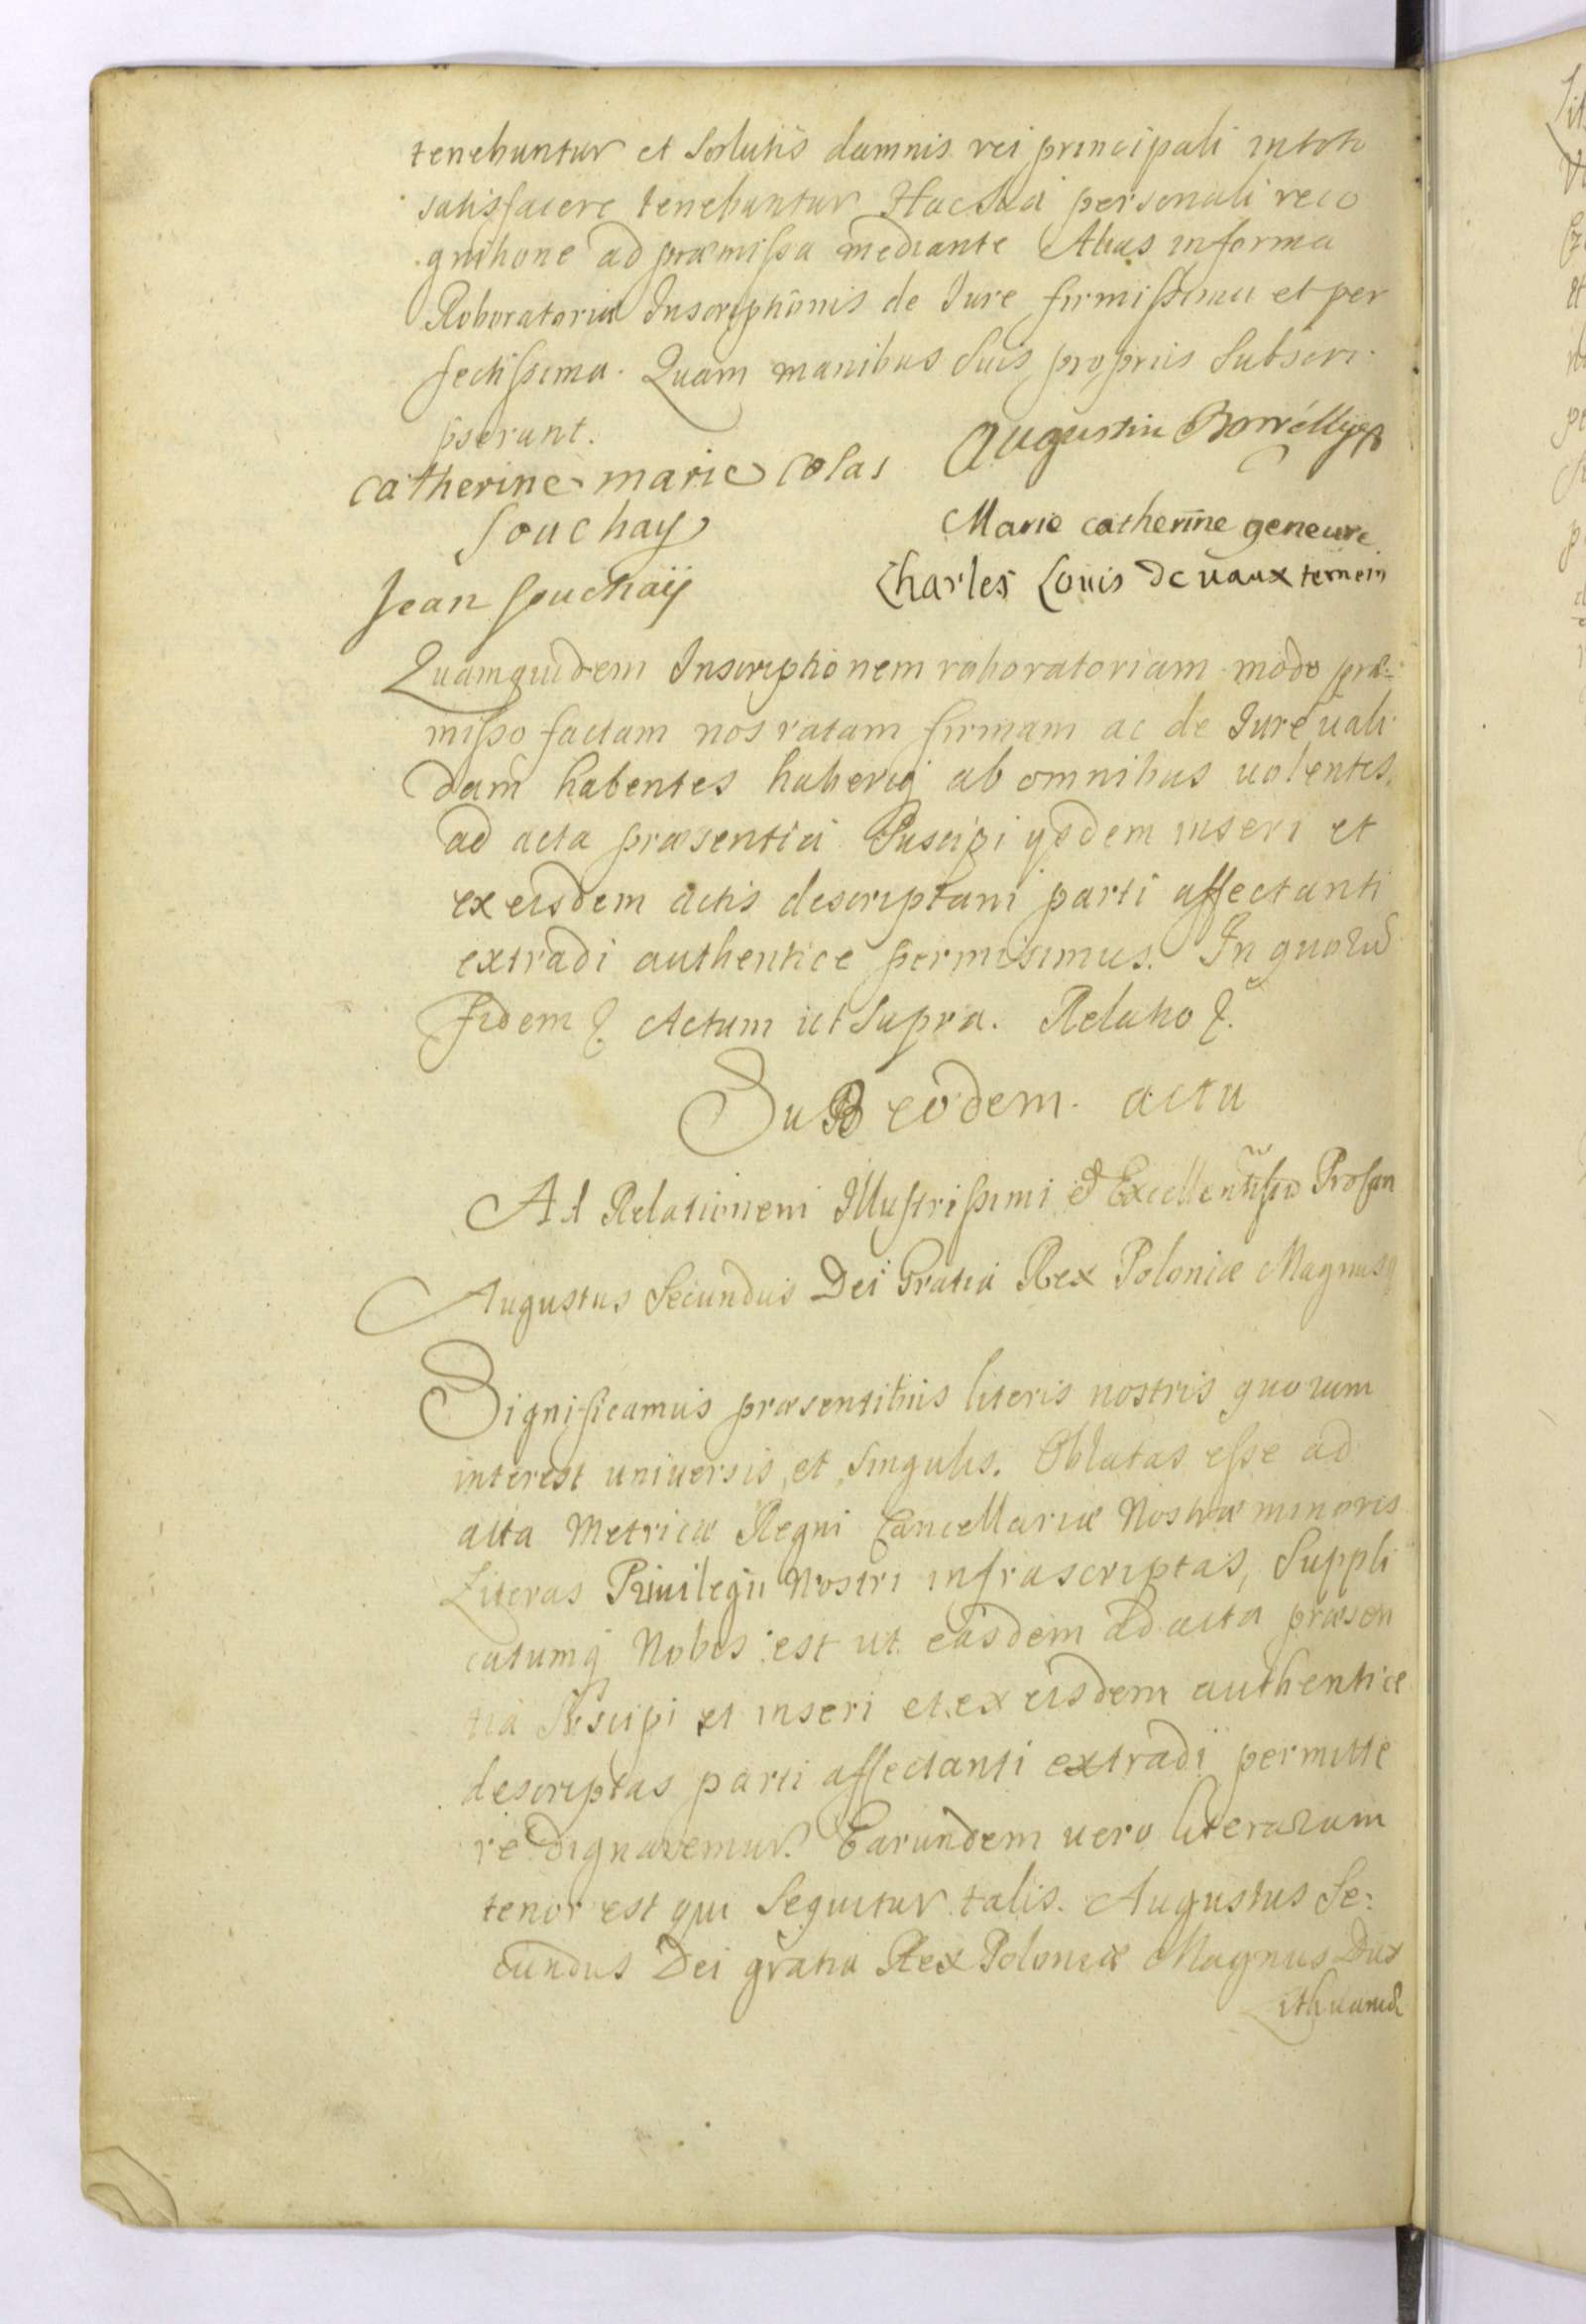 tenebuntur et Solutis damnis rei principali in toto
satisfacere tenebuntur Hac Sua personali reco
gnitione ad præmissa mediante Alias in forma
Roboratoriæ Inscriptionis de Iure firmissima et per
fectissima. Quam manibus Suis propriis Subscri-
pserunt.
Augustin
catherine marie colas
Souchay
Marie catherine geneure
Jean Souchaÿ
Charles Louis De vaux temoin
Quamquidem Inscriptionem roboratoriam modo præ-
misso factam nos ratam firmam ac de Iure uali
dam habentes haberiq ab omnibus uolentes,
ad acta præsentia Suscipi ysdem inseri et
ex eisdem actis descriptam parti affectanti
extradi authentice permisimus. In quoru
fidem & Actum ut Supra. Relatio &.
SuB eodem actu
Ad Relationem Illustrissimi & Excellen
Augustus Secundus Dei Gratia Rex Poloniæ Magnusq
Significamus præsentibus literis nostris quorum
interest uniuersis, et Singulis. Oblatas esse ad
acta Metricæ Regni Cancellariæ Nostræ minoris
Literas Priuilegii Nostri infrascriptas, Suppli
catumq Nobis est ut easdem ad acta præsen
tia Suscipi et inseri et ex eisdem authentice
descriptas parti affectanti extradi permitte
re dignaremur. Earundem uero literarum
tenor est qui Sequitur talis. Augustus Se-
cundus Dei gratia Rex Poloniæ Magnus Dux
Lithuaniæ